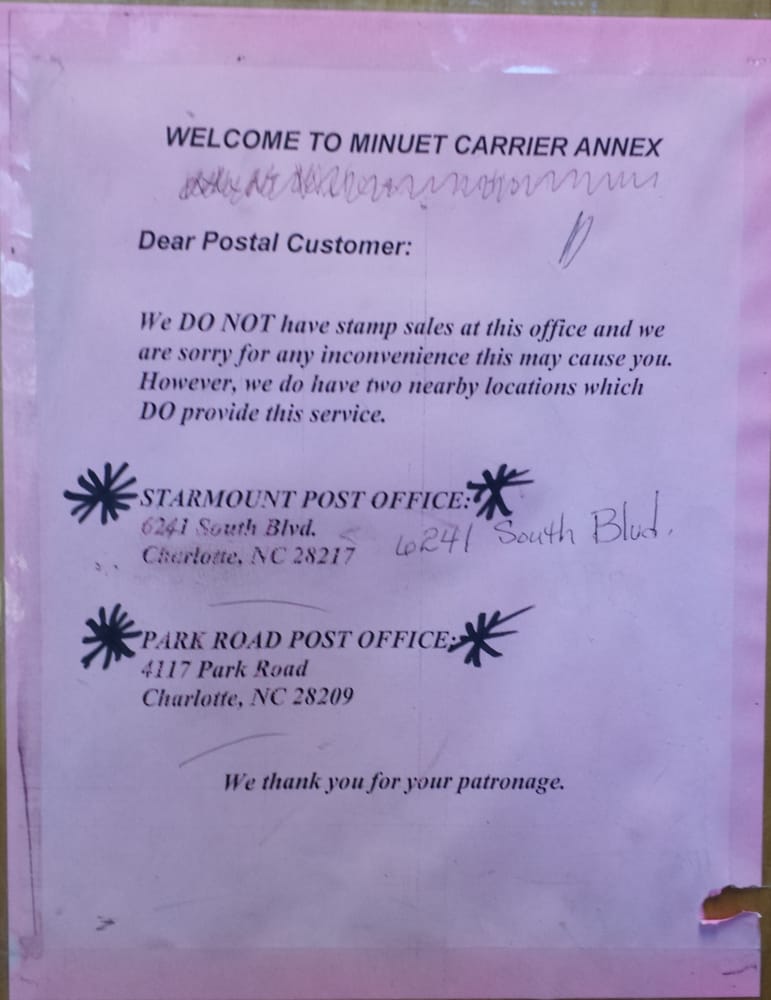 WELCOME TO MINUET CARRIER ANNEX
Dear Postal Customer:
We DO NOT have stamp sales at this office and we
are sorry for any inconvenience this may cause you.
However, we do have two nearby locations which
DO provide this service.
STARMOUNT POST OFFICE:
6241 South Blvd.
Charlotte, NC 28217
6241 South Blvd.
PARK ROAD POST OFFICE:
4117 Park Road
Charlotte, NC 28209
We thank you for your patronage.